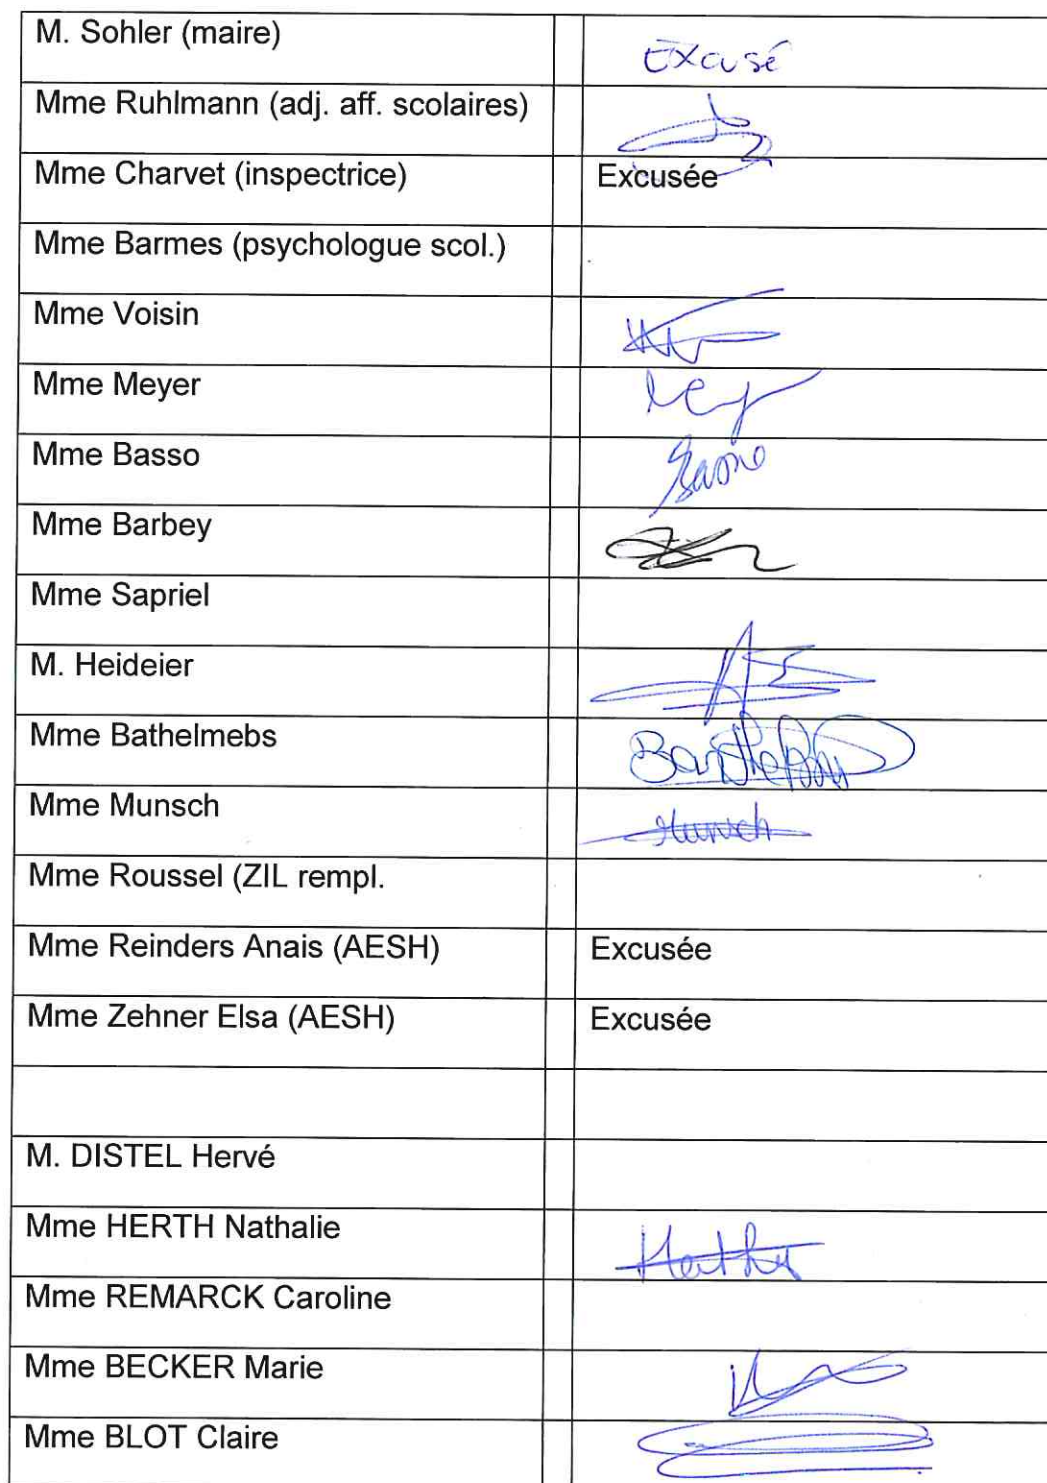 M. Sohler (maire)
Excusé
Mme Ruhlmann (adj. aff. scolaires)
Mme Charvet (inspectrice)
Excusée
Mme Barmes (psychologue scol.)
Mme Voisin
Mme Meyer
Mme Basso
Basso
Mme Barbey
Mme Sapriel
M. Heideier
Mme Bathelmebs
Mme Munsch
Munsch
Mme Roussel (ZIL rempl.
Mme Reinders Anais (AESH)
Excusée
Mme Zehner Elsa (AESH)
Excusée
M. DISTEL Hervé
Mme HERTH Nathalie
Mme REMARCK Caroline
Mme BECKER Marie
Mme BLOT Claire